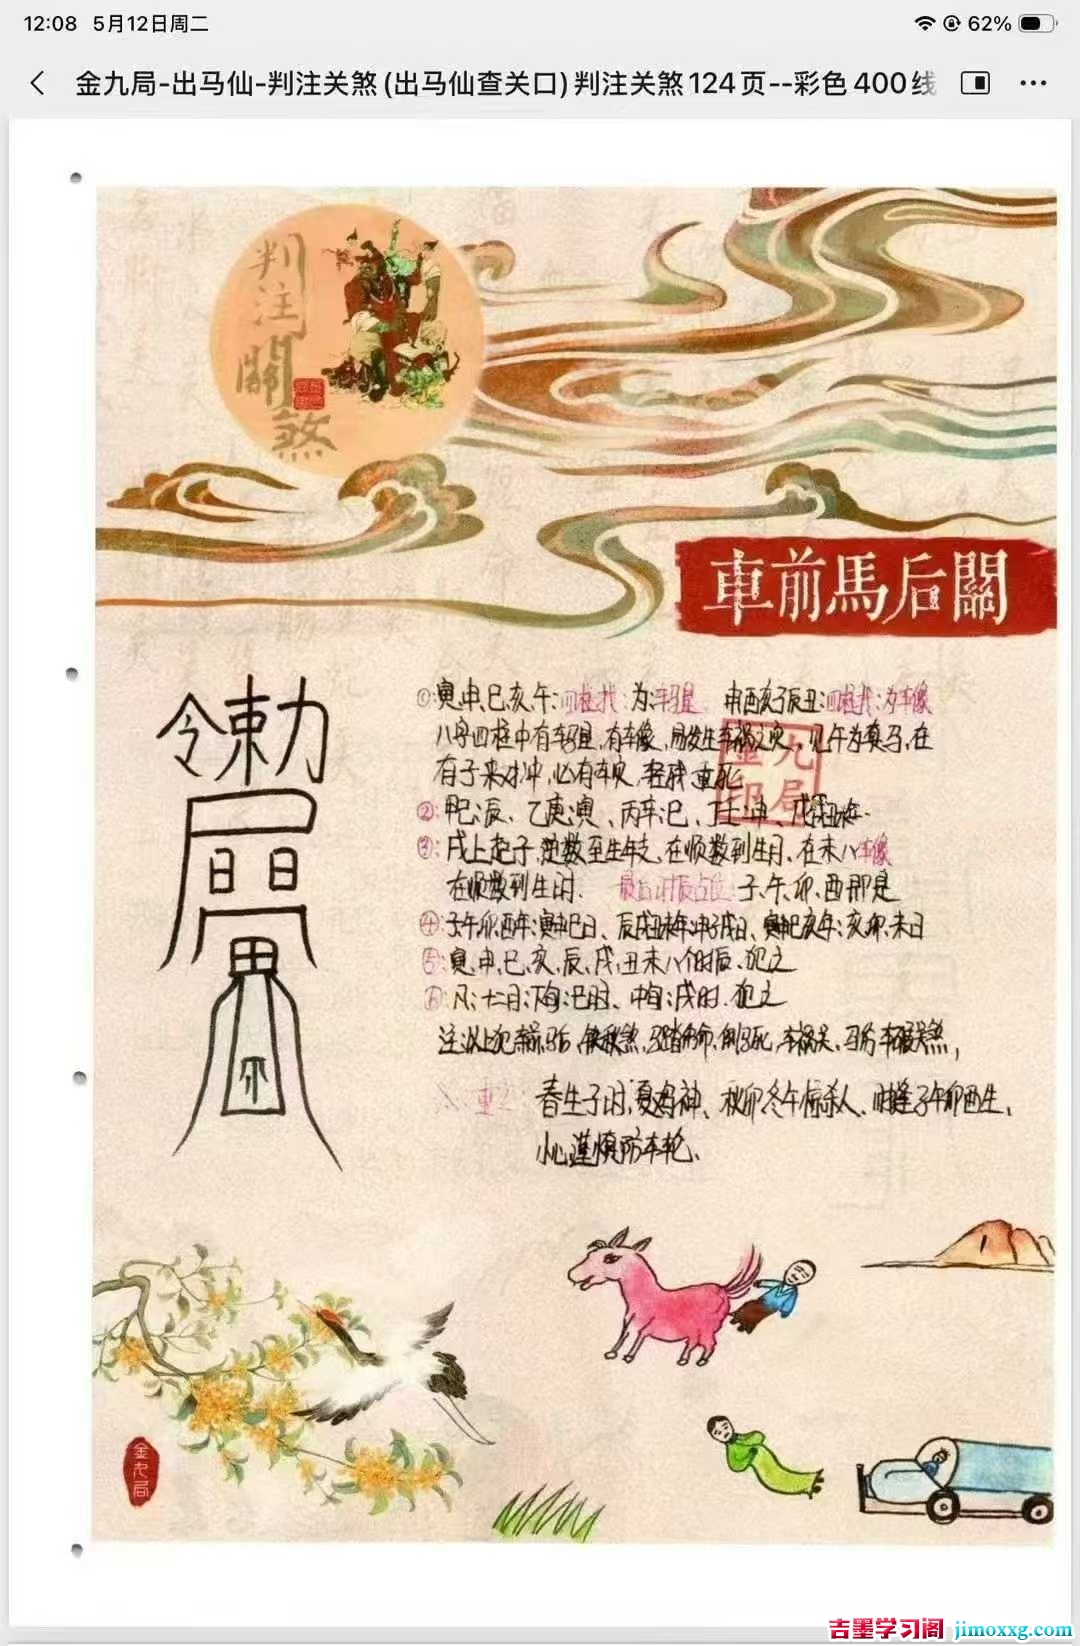 12:08 5月12日周二
62%
金九局-出马仙-判注关煞(出马仙查关口)判注关煞124页--彩色400线
判注關煞
車前馬后關
勅令
九局金印
①:寅申、巳亥、午:四柱找:为:车马星 申酉亥子辰丑:四柱找:为车像
八字四柱中有车马星,有车像,易发生车祸之灾,见午为真马,在
有子来对冲,必有车灾,轻残重死
②:甲巳:辰、乙庚:寅、丙辛:巳、丁壬:申、戊
③:戌上起子,逆数至生年支,在顺数到生月、在未八车像
在顺数到生时. 最后时辰占位:子、午、卯、酉那是
④:子午卯酉年:寅申巳日、辰戌丑未年:子戌日、寅申巳亥年:亥、卯、未日
⑤:寅、申、巳、亥、辰、戌、丑未八个时辰、犯之
⑥:凡:十二月:下旬:巳时、中旬:戌时、犯之
注:以上犯
重
春生子时,夏 秋卯冬午 杀人、时逢子午卯酉生,
小心谨慎防车轮、
金九局
吉墨学习阁 jimoxxg.com